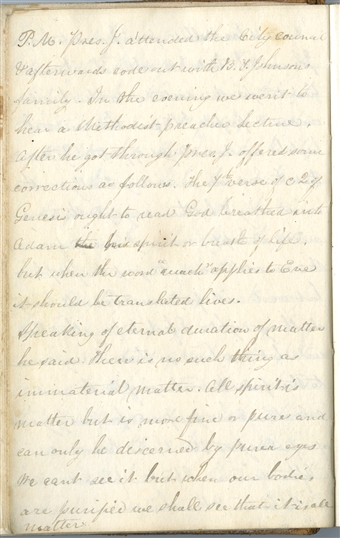 P.M. Pres. J. attended the City council
& afterwards rode out with B. F. Johnsons
family. In the evening we went to
hear a Methodist preacher lecture.
After he got through Pres. J. offered some
corrections as follows. The 7th verse of c 2 of
Genesis ought to read God breathed into
Adam the his spirit or breath of life,
but when the word "ruach" applies to Eve
it should be translated lives.
Speaking of eternal duration of matter
he said. There is no such thing as
immaterial matter. All spirit is
matter but is more fine or pure and
can only be discerned by purer eyes
We cant see it but when our bodies
are purified we shall see that it is all
matter